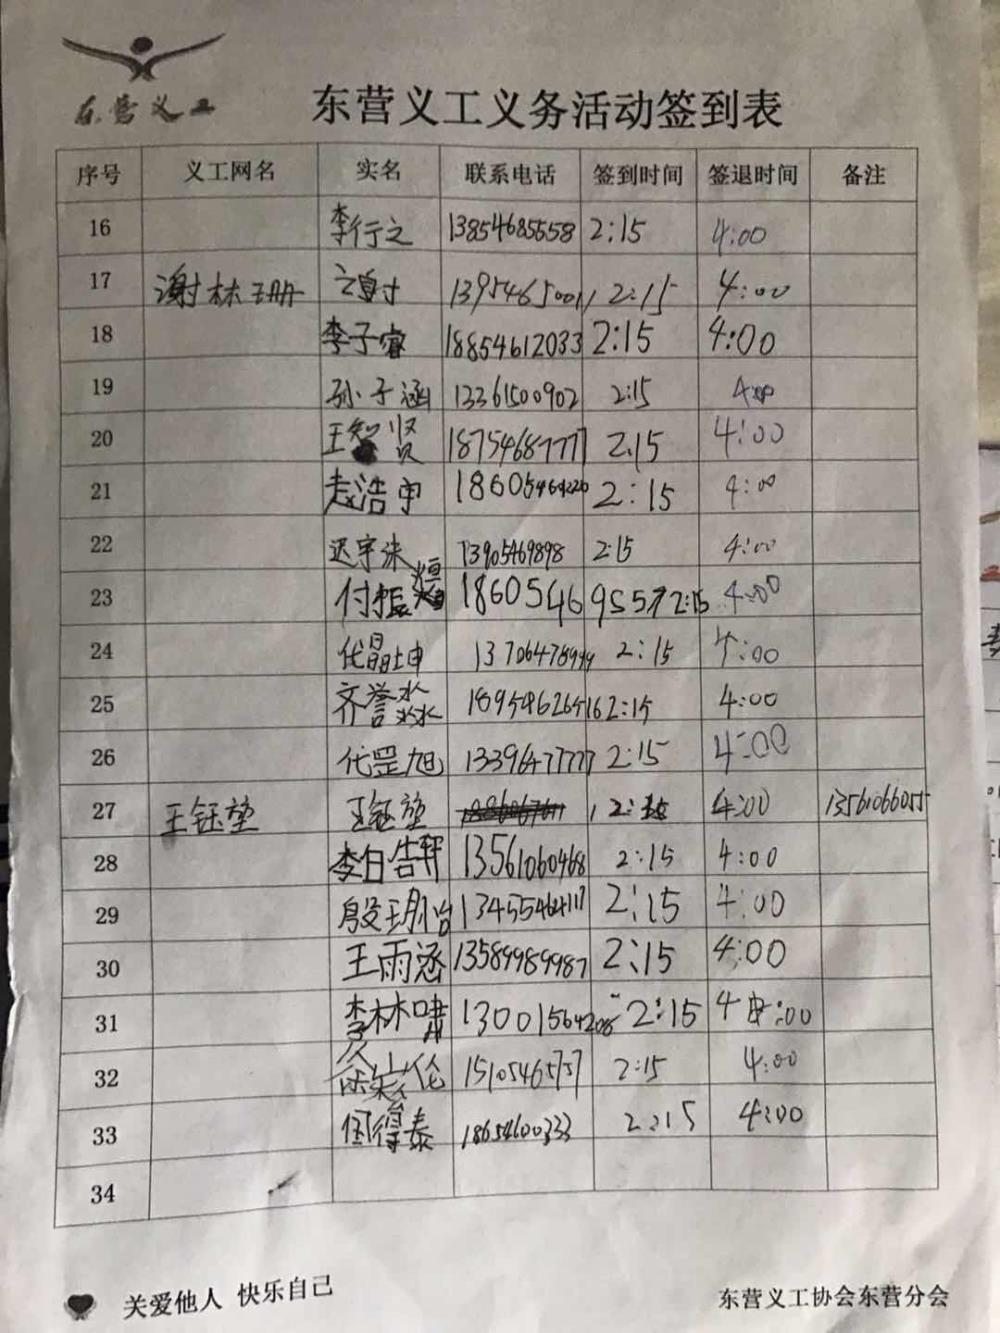 东营义工
东营义工义务活动签到表
序号 义工网名 实名 联系电话 签到时间 签退时间 备注
16 李行之 13854685558 2:15 4:00
17 谢林珊 2:15 4:00
18 李子睿 18854612033 2:15 4:00
19 孙子涵 13361500902 2:15 4:00
20 王智贤 18754687777 2:15 4:00
21 赵浩宇 2:15 4:00
22 迟宇涞 13905469898 2:15 4:00
23 付振煊 18605469557 2:15 4:00
24 代晶坤 13706478999 2:15 4:00
25 齐誉淼 18954626516 2:15 4:00
26 代罡旭 13396477777 2:15 4:00
27 王钰堃 王钰堃 2:15 4:00 13561066055
28 13561060468 2:15 4:00
29 殷玥怡 13455464117 2:15 4:00
30 王雨涵 13589989987 2:15 4:00
31 李林啸 13001564208 2:15 4:00
32 15105465757 2:15 4:00
33 18654600333 2:15 4:00
34
关爱他人 快乐自己
东营义工协会东营分会